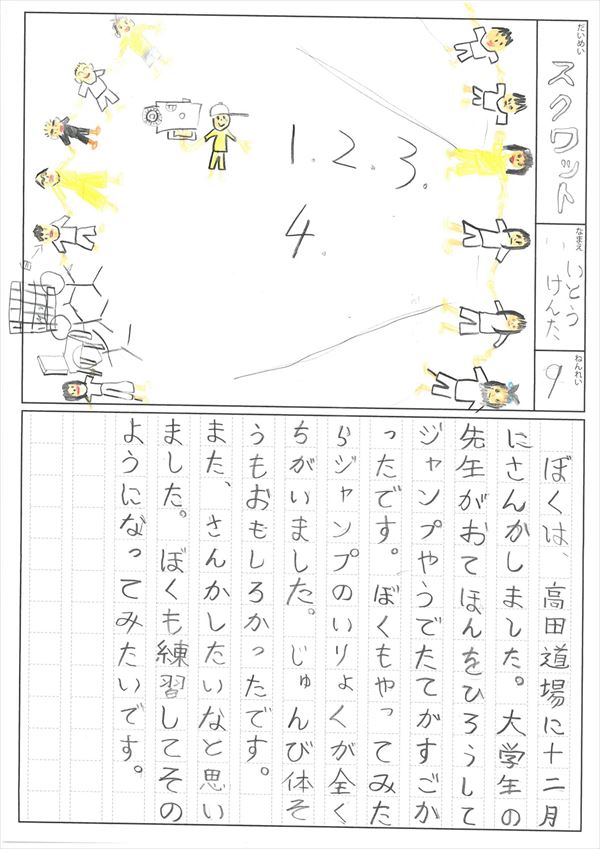 だいめい
スクワット
なまえ
いとう
けんた
ねんれい
9
1. 2. 3.
4.
ぼくは、高田道場に十二月
にさんかしました。大学生の
先生がおてほんをひろうして
ジャンプやうでたてかすごか
ったです。ぼくもやってみた
らジャンプのいりょくが全く
ちがいました。じゅんび体そ
うもおもしろかったです。
また、さんかしたいなと思い
ました。ぼくも練習してその
ようになってみたいです。